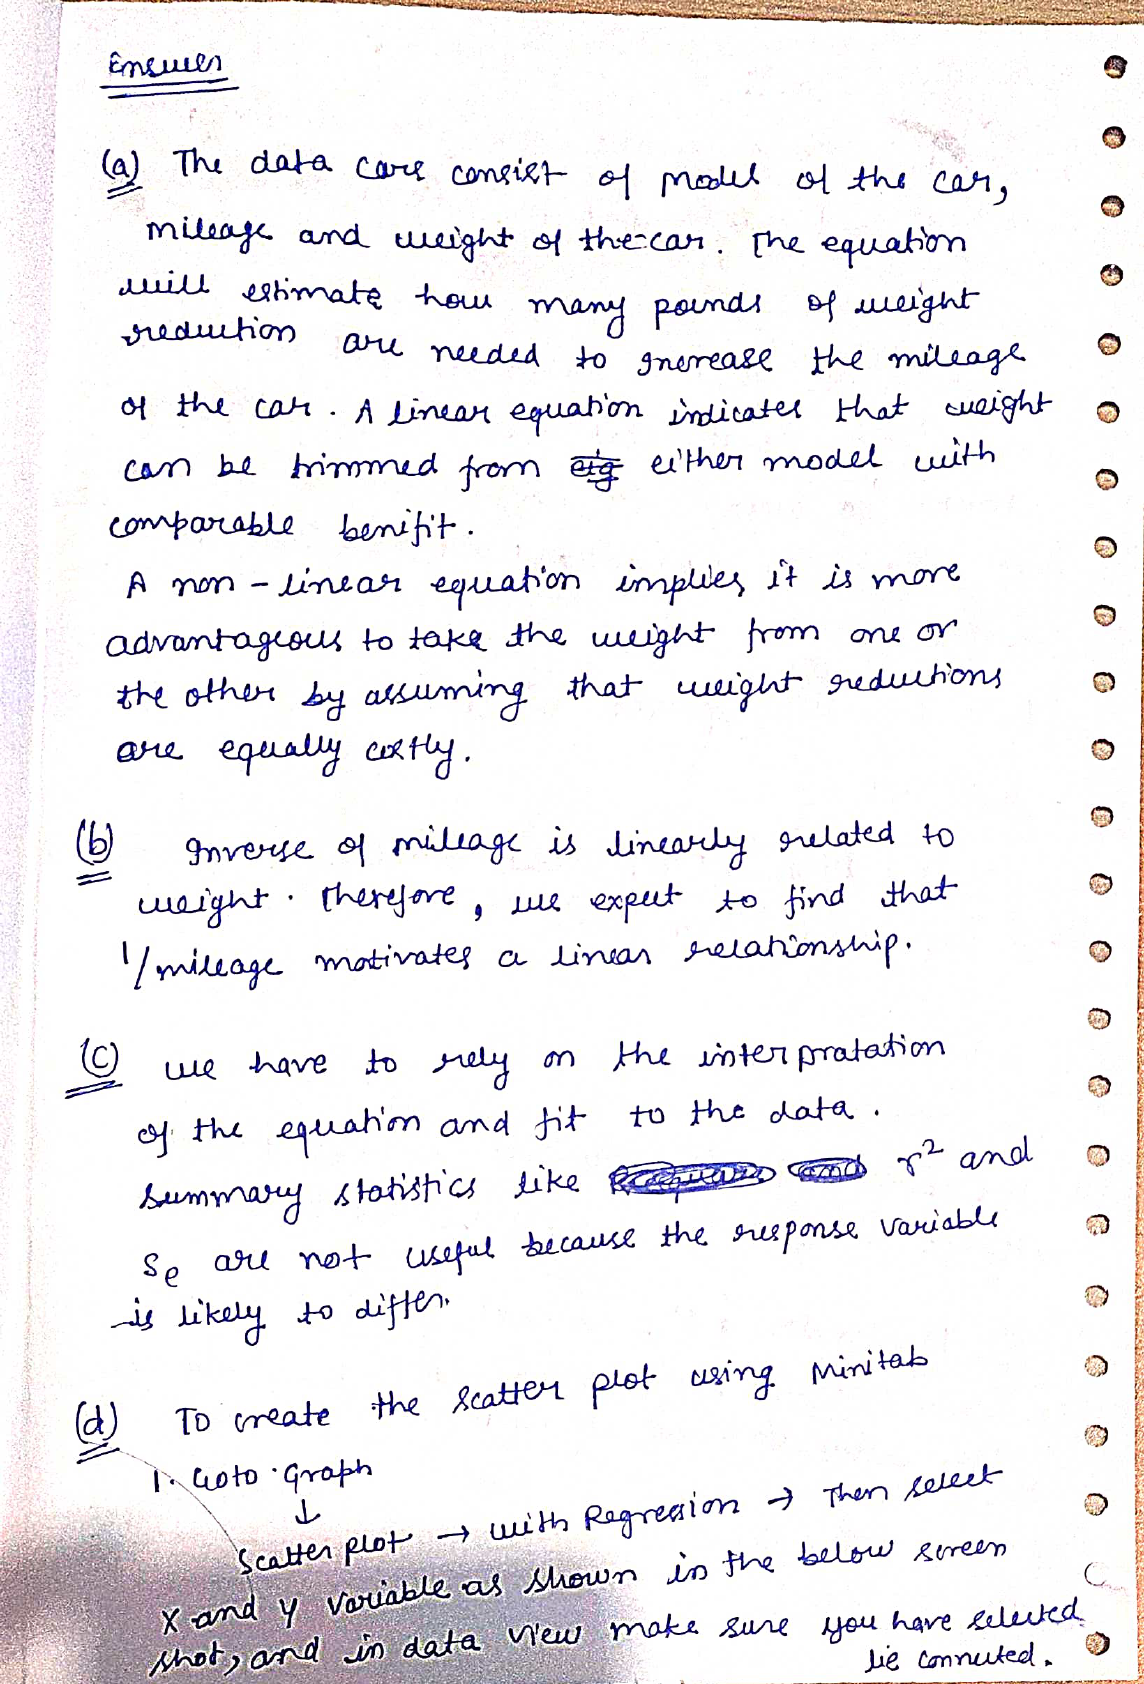 Answer
(a) The data cars consist of model of the car,
mileage and weight of the car. The equation
will estimate how many pounds of weight
reduction are needed to increase the mileage
of the car. A linear equation indicates that weight
can be trimmed from either model with
comparable benifit.
A non-linear equation implies it is more
advantageous to take the weight from one or
the other by assuming that weight reductions
are equally costly.
(b) Inverse of mileage is linearly related to
weight. Therefore, we expect to find that
1/mileage motivates a linear relationship.
(c) we have to rely on the interpratation
of the equation and fit to the data.
Summary statistics like r² and
Se are not useful because the response variable
is likely to differ.
(d) To create the scatter plot using Minitab
1. Goto Graph
↓
Scatter plot → with Regression → Then select
X and y variable as shown in the below screen
shot, and in data view make sure you have selected
connected.